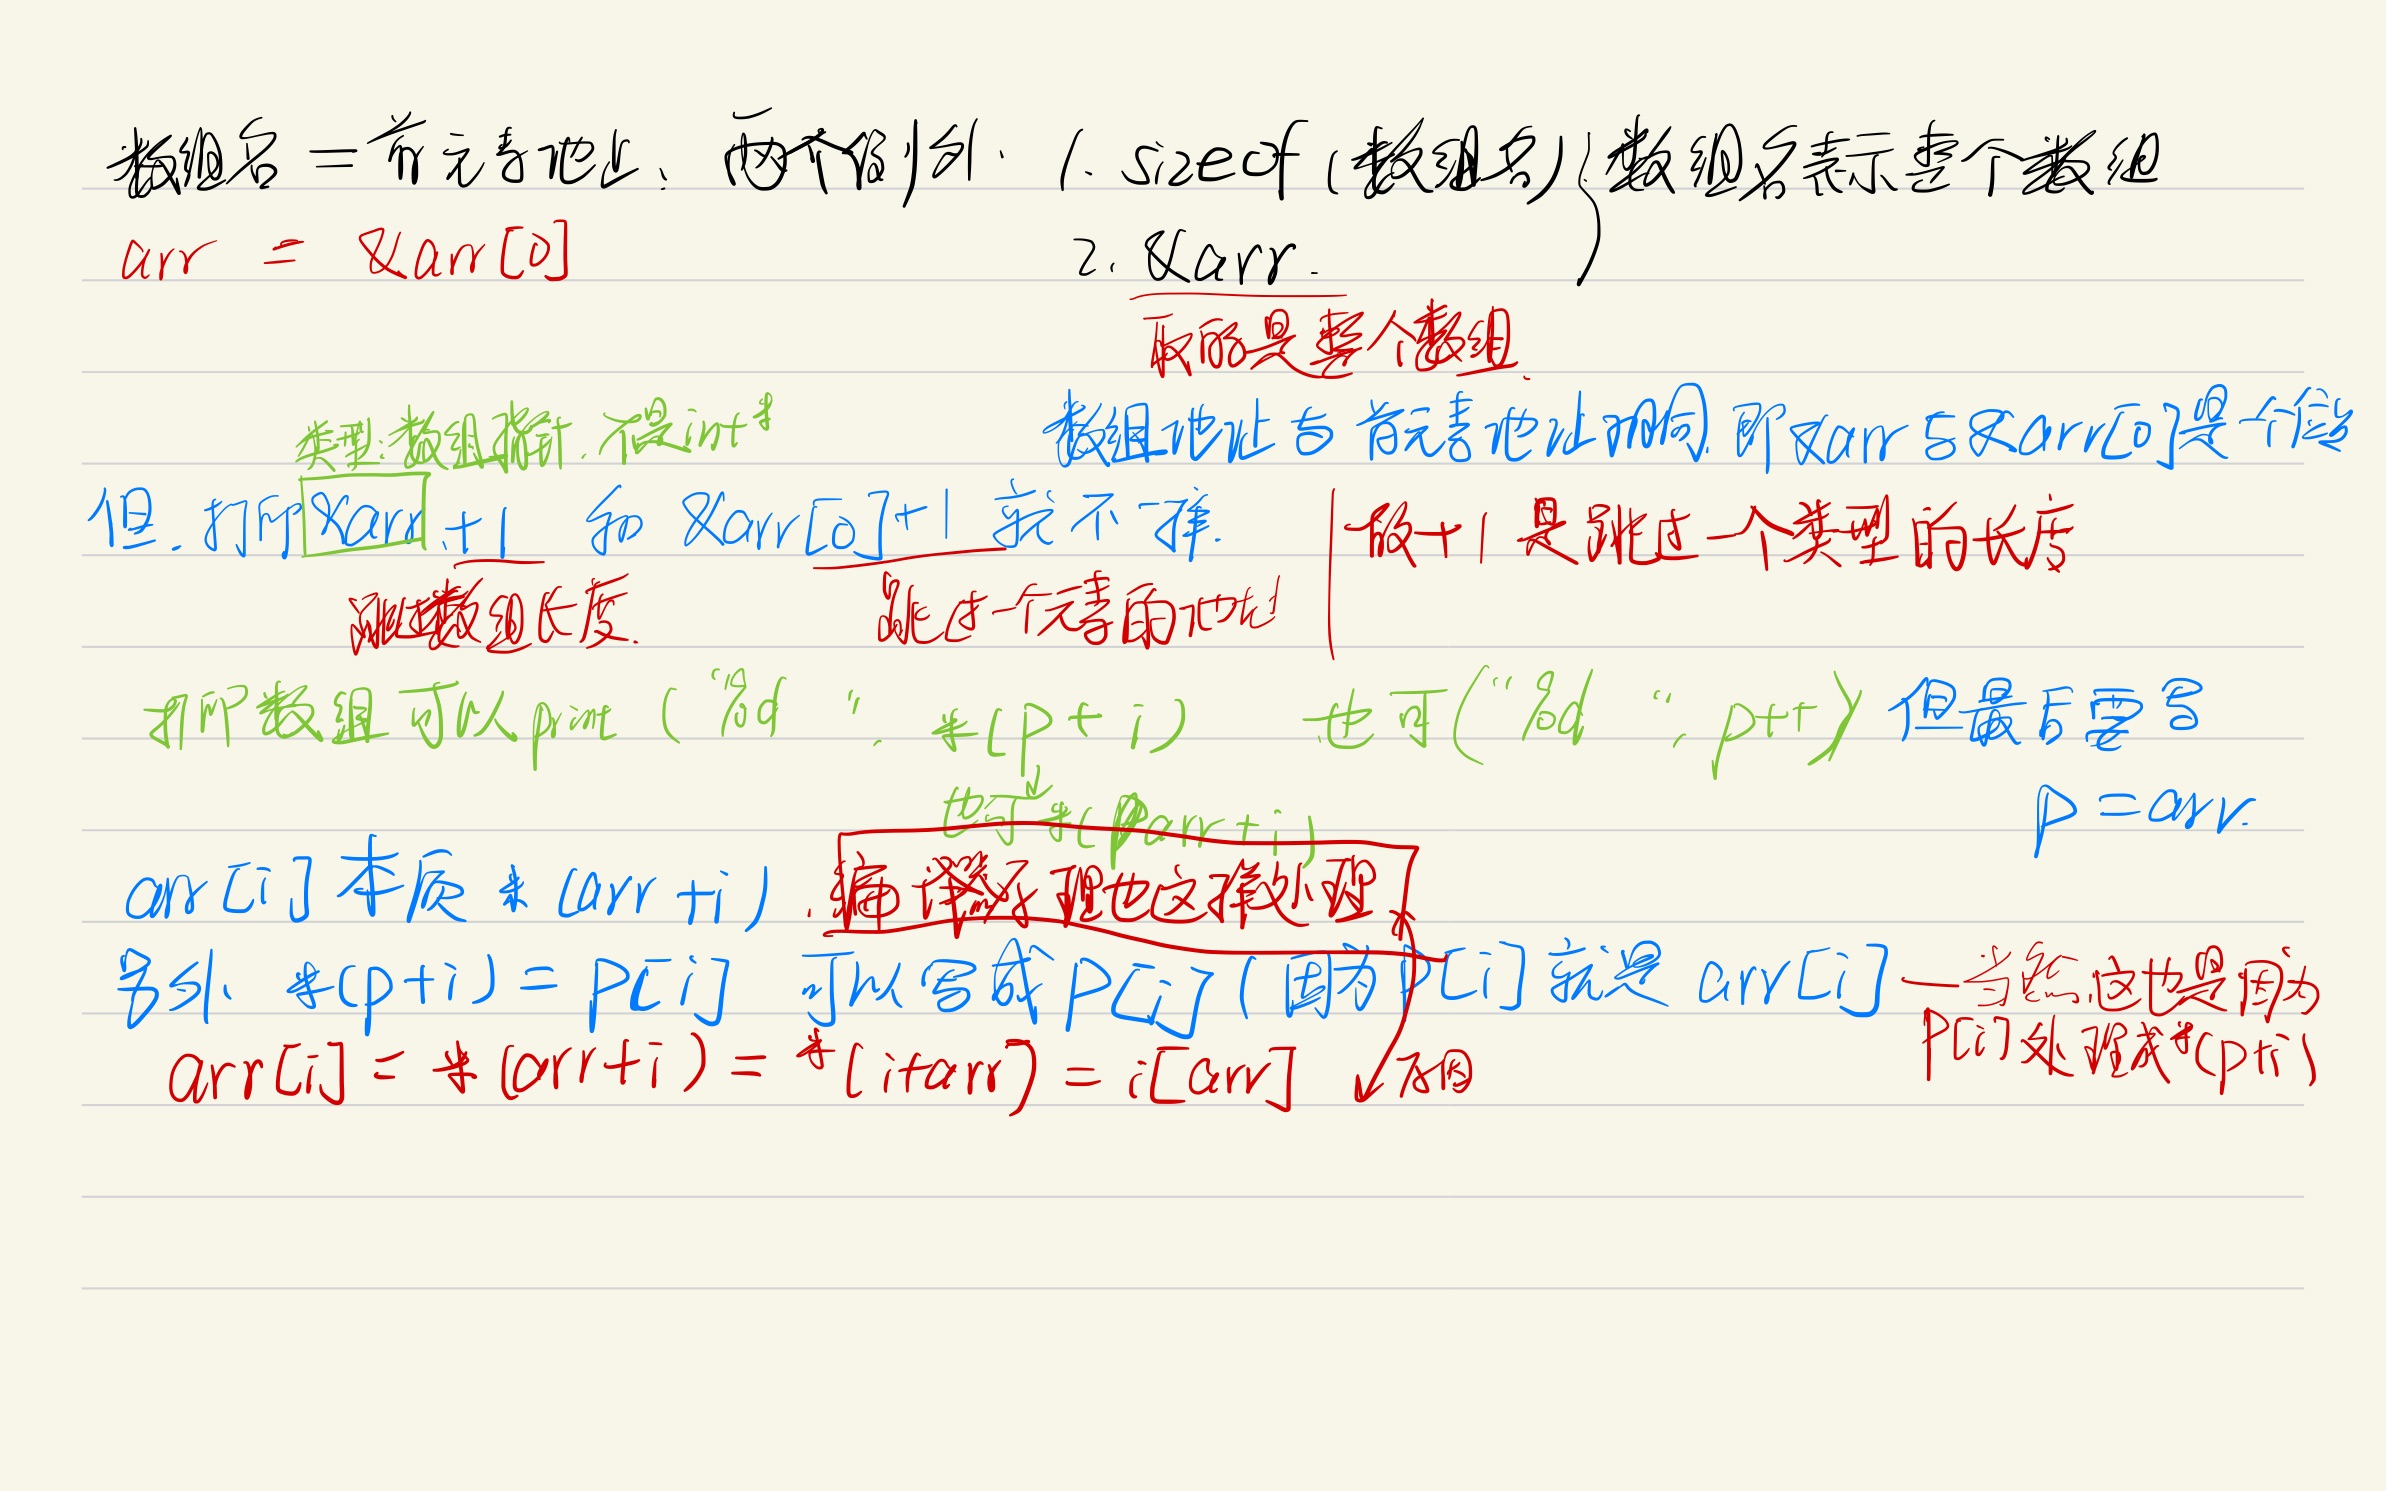 数组名 = 首元素地址、两个例外. 1. sizeof (数组名) } 数组名表示整个数组
arr = &arr[0]
2. &arr.
取的是整个数组.
类型:数组指针.不是int*
数组地址与首元素地址相同.即&arr与&arr[0]是一个
但.打印&arr+1 和 &arr[0]+1 就不一样.
故+1是跳过一个类型的长度
跳过数组长度.
跳过一个元素的地址
打印数组可以print ("%d ", *(p+i) 也可("%d ", p++) 但最后要写
p = arr.
也可*(arr+i)
arr[i]本质 *(arr+i).
编译器处理也这样处理
另外、*(p+i) = p[i] 可以写成p[i] (因为p[i]就是arr[i]
—当然,这也是因为
p[i]处理成*(p+i)
arr[i] = *(arr+i) = *(i+arr) = i[arr]